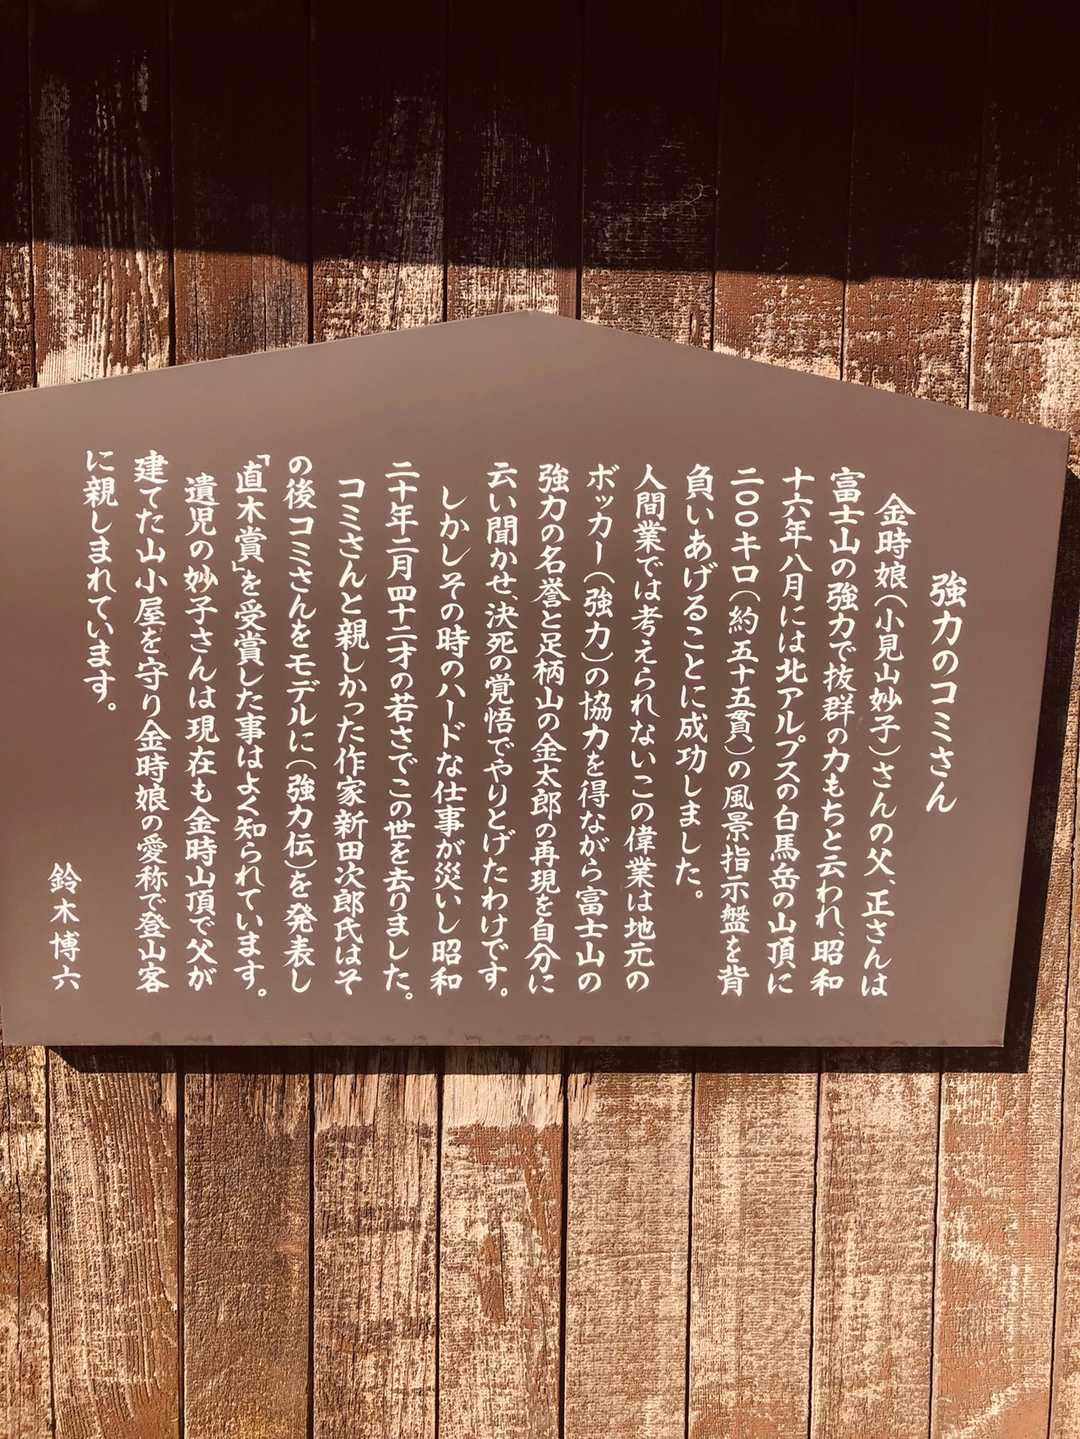 強力のコミさん
金時娘(小見山妙子)さんの父、正さんは
富士山の強力で抜群の力もちと云われ、昭和
十六年八月には北アルプスの白馬岳の山頂に
二〇〇キロ(約五十五貫)の風景指示盤を背
負いあげることに成功しました。
人間業では考えられないこの偉業は地元の
ボッカー(強力)の協力を得ながら富士山の
強力の名誉と足柄山の金太郎の再現を自分に
云い聞かせ、決死の覚悟でやりとげたわけです。
しかしその時のハードな仕事が災いし昭和
二十年二月四十二才の若さでこの世を去りました。
コミさんと親しかった作家新田次郎氏はそ
の後コミさんをモデルに(強力伝)を発表し
「直木賞」を受賞した事はよく知られています。
遺児の妙子さんは現在も金時山頂で父が
建てた山小屋を守り金時娘の愛称で登山客
に親しまれています。
鈴木博六